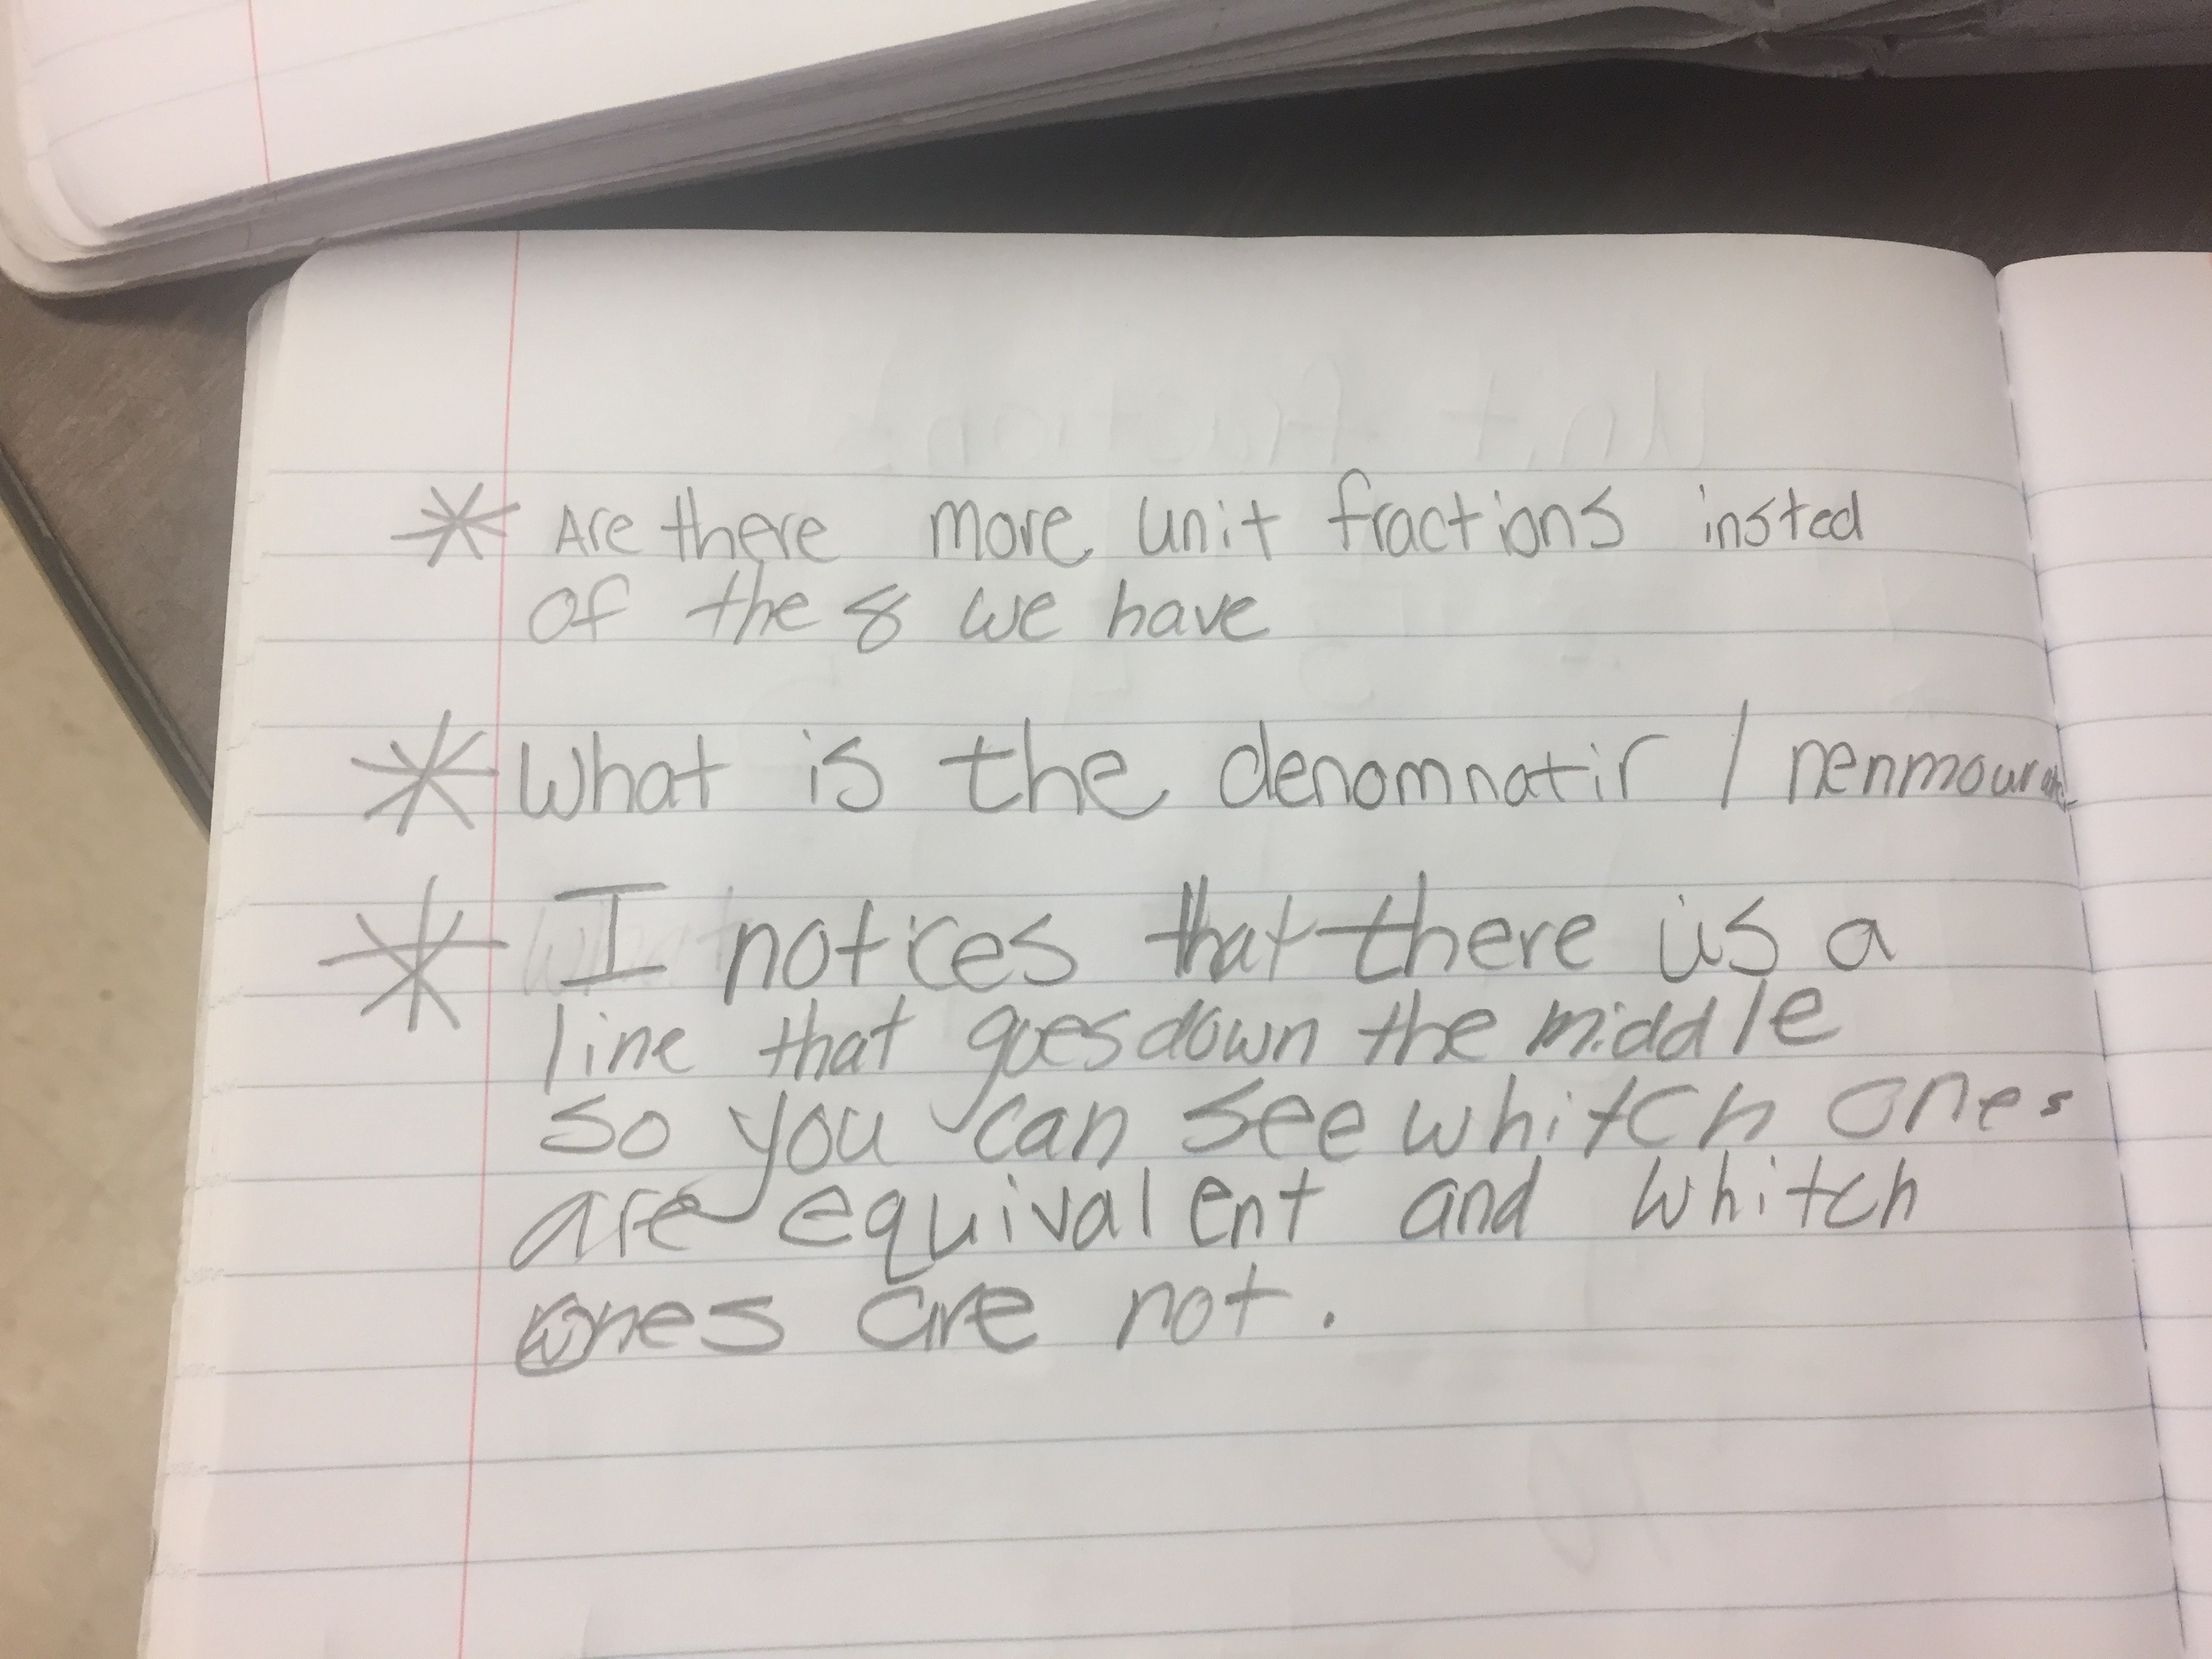 * Are there more unit fractions insted
of the 8 we have
* What is the denomnatir /
* I notices that there is a
line that goes down the middle
so you can see whitch ones
are equivalent and whitch
ones are not.